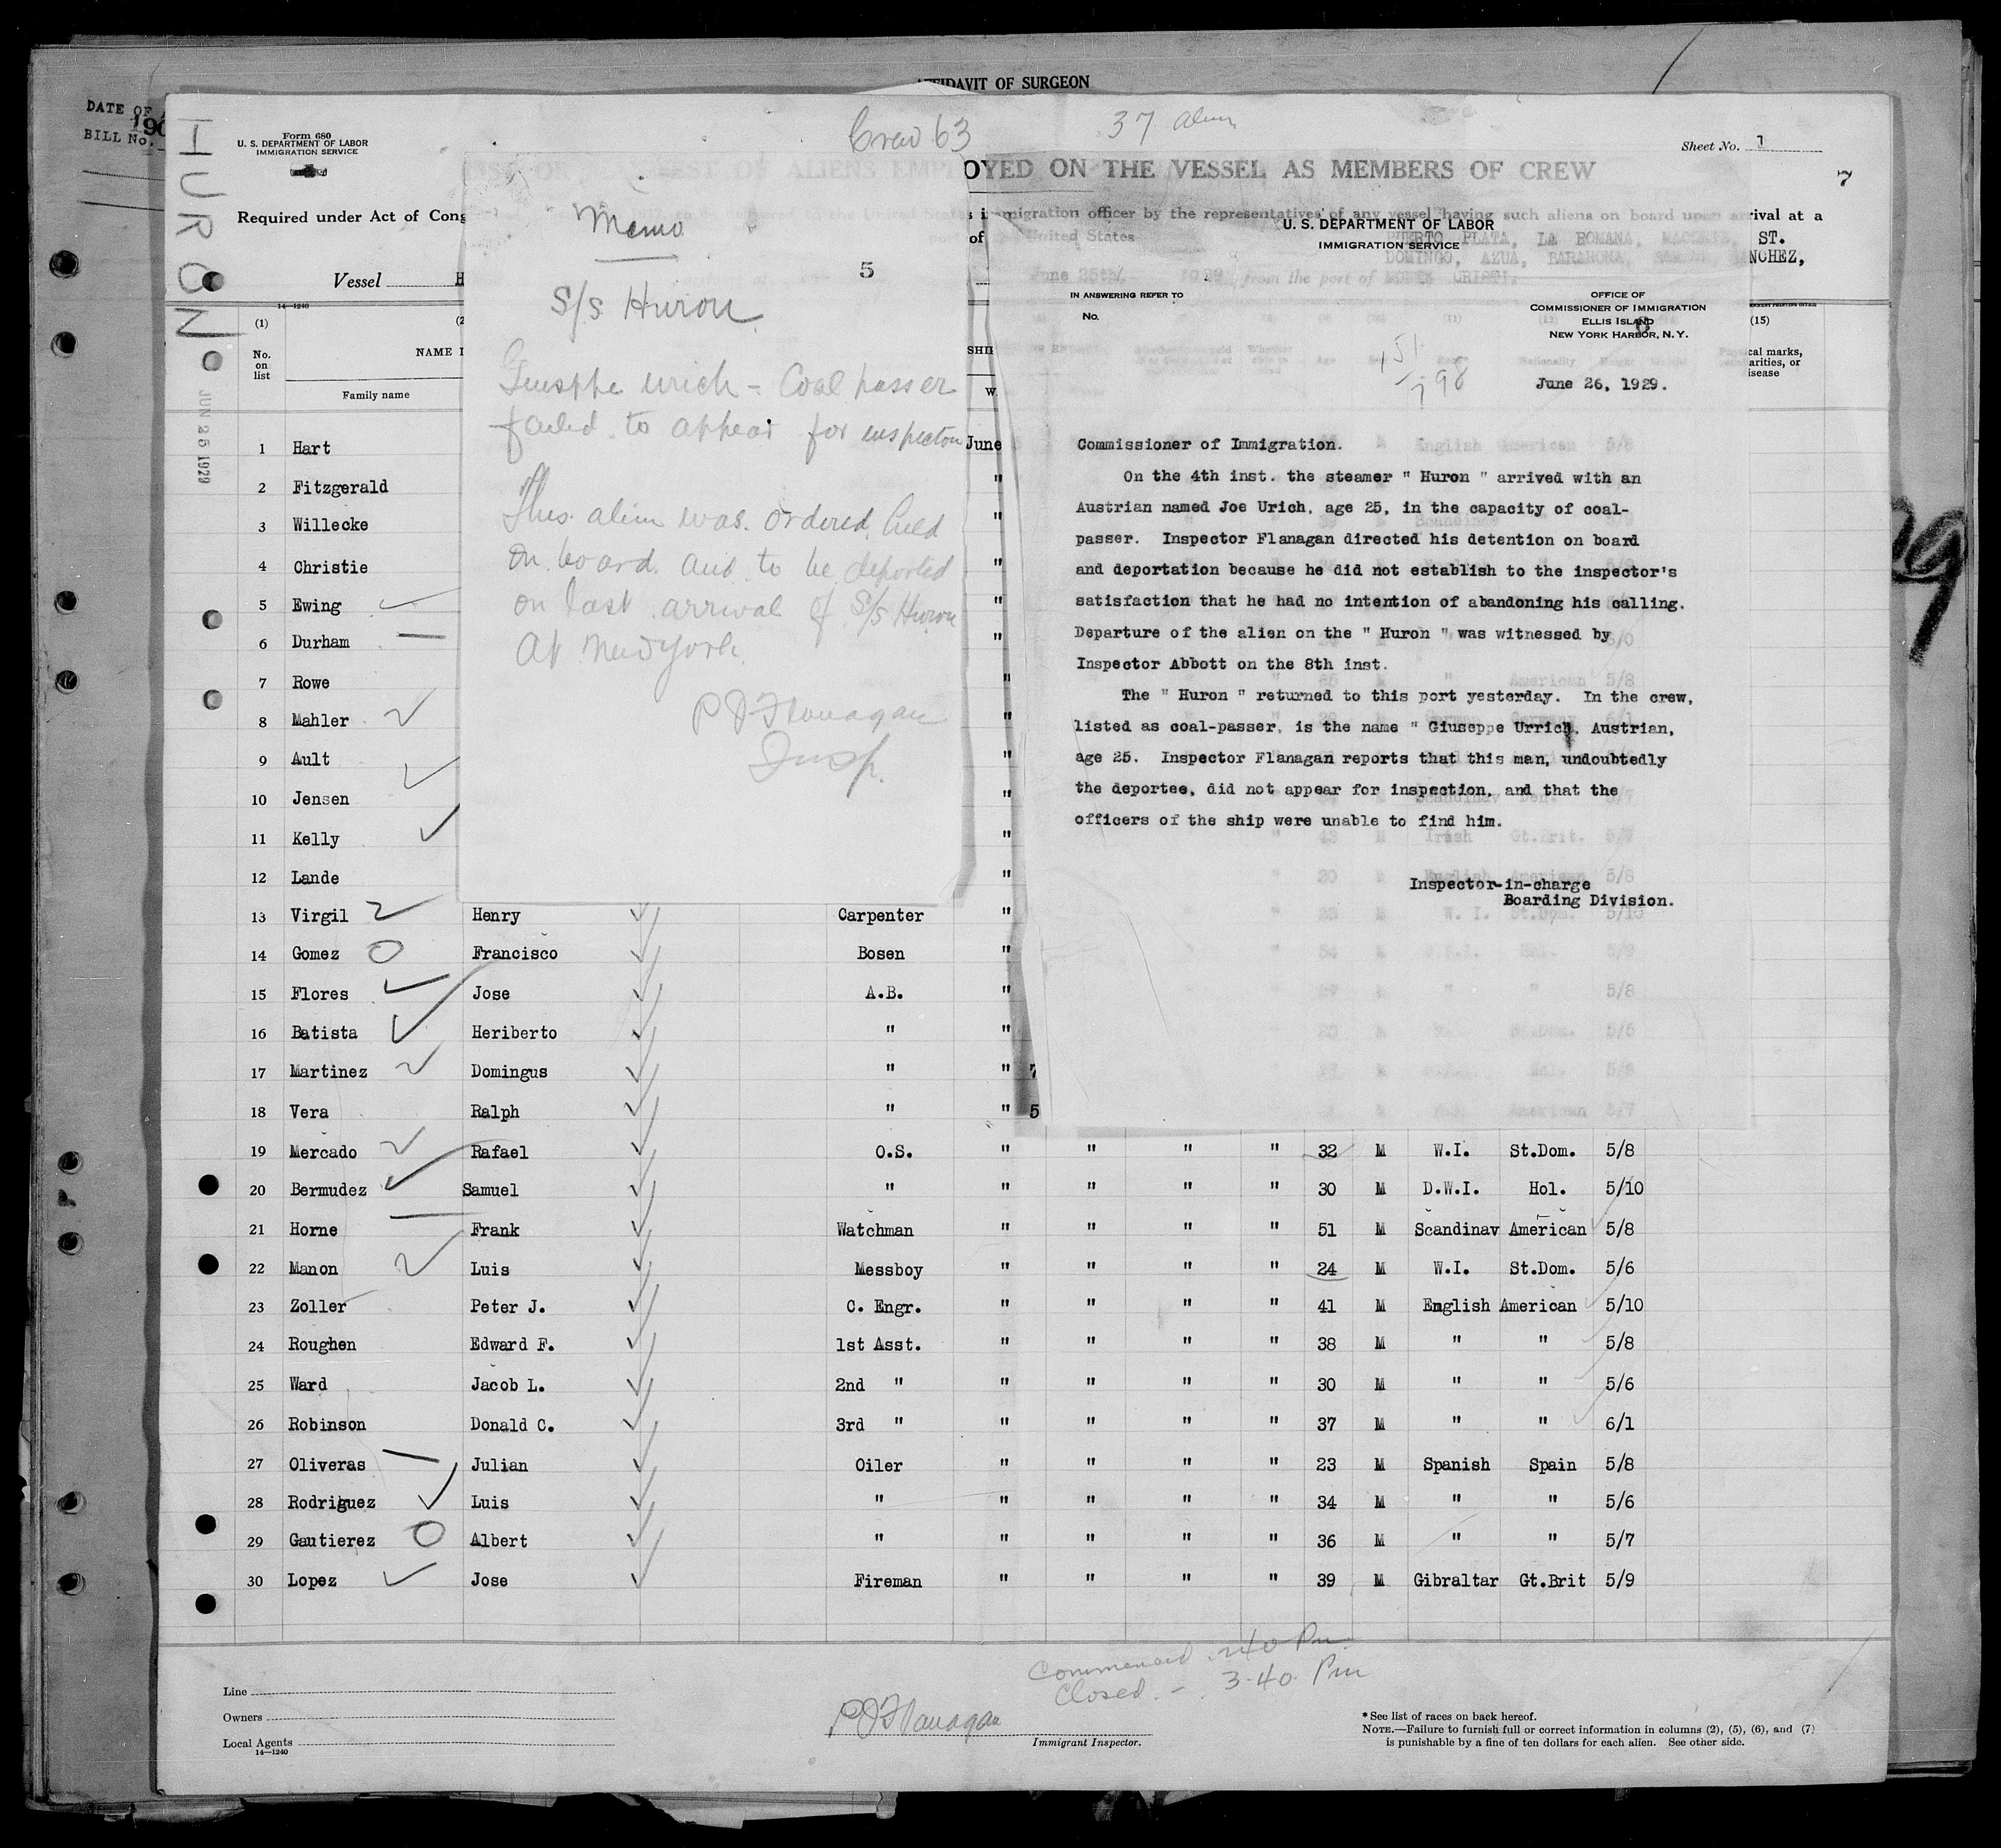 AFFIDAVIT OF SURGEON
DATE OF
190
BILL No.
HURON
JUN 25 1929
Form 680
U. S. DEPARTMENT OF LABOR
IMMIGRATION SERVICE
Crew 63
37 alien
Sheet No. 1
7
OYED ON THE VESSEL AS MEMBERS OF CREW
Required under Act of Cong
immigration officer by the representatives of any vessel having such aliens on board upon arrival at a
of United States
PUERTO PLATA, LA ROMANA, ST.
DOMINGO, AZUA, BARAHONA, NCHEZ,
Vessel H
June 25th/ 1929 from the port of MONTE CRISTI.
14—1240
(1)
No. on list
(2
NAME I
Family name
SHI
W
(15)
cal marks,
arities, or
isease
Memo
5
S/s Huron
Giuseppe Urich - Coal passer
failed to appear for inspection
This alien was ordered held
on board and to be deported
on last arrival of S/s Huron
At New York
P J Flanagan
Insp.
U. S. DEPARTMENT OF LABOR
IMMIGRATION SERVICE
IN ANSWERING REFER TO
No.
OFFICE OF
COMMISSIONER OF IMMIGRATION
ELLIS ISLAND
NEW YORK HARBOR, N. Y.
6
151
/ 798
June 26, 1929.
Commissioner of Immigration.
On the 4th inst. the steamer " Huron " arrived with an
Austrian named Joe Urich, age 25, in the capacity of coal-
passer. Inspector Flanagan directed his detention on board
and deportation because he did not establish to the inspector's
satisfaction that he had no intention of abandoning his calling.
Departure of the alien on the " Huron " was witnessed by
Inspector Abbott on the 8th inst.
The " Huron " returned to this port yesterday. In the crew,
listed as coal-passer, is the name " Giuseppe Urrich, Austrian,
age 25. Inspector Flanagan reports that this man, undoubtedly
the deportee, did not appear for inspection, and that the
officers of the ship were unable to find him.
Inspector-in-charge
Boarding Division.
1 Hart June
2 Fitzgerald "
3 Willecke "
4 Christie "
5 Ewing "
6 Durham "
7 Rowe "
8 Mahler "
9 Ault "
10 Jensen "
11 Kelly "
12 Lande "
13 Virgil Henry Carpenter "
14 Gomez Francisco Bosen "
15 Flores Jose A.B. "
16 Batista Heriberto " "
17 Martinez Domingus " " 7
18 Vera Ralph " " 5
19 Mercado Rafael O.S. " " " " 32 M W.I. St.Dom. 5/8
20 Bermudez Samuel " " " " " 30 M D.W.I. Hol. 5/10
21 Horne Frank Watchman " " " " 51 M Scandinav American 5/8
22 Manon Luis Messboy " " " " 24 M W.I. St.Dom. 5/6
23 Zoller Peter J. C. Engr. " " " " 41 M English American 5/10
24 Roughen Edward F. 1st Asst. " " " " 38 M " " 5/8
25 Ward Jacob L. 2nd " " " " " 30 M " " 5/6
26 Robinson Donald C. 3rd " " " " " 37 M " " 6/1
27 Oliveras Julian Oiler " " " " 23 M Spanish Spain 5/8
28 Rodriguez Luis " " " " " 34 M " " 5/6
29 Gautierez Albert " " " " " 36 M " " 5/7
30 Lopez Jose Fireman " " " " 39 M Gibraltar Gt.Brit 5/9
Commenced 240 Pm
Closed - 3-40 Pm
Line
Owners
Local Agents
14—1240
P J Flanagan
Immigrant Inspector.
* See list of races on back hereof.
NOTE.—Failure to furnish full or correct information in columns (2), (5), (6), and (7)
is punishable by a fine of ten dollars for each alien. See other side.